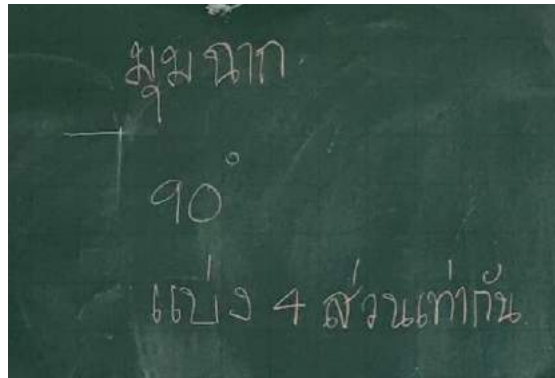 มุมฉาก
90°
แบ่ง 4 ส่วนเท่ากัน